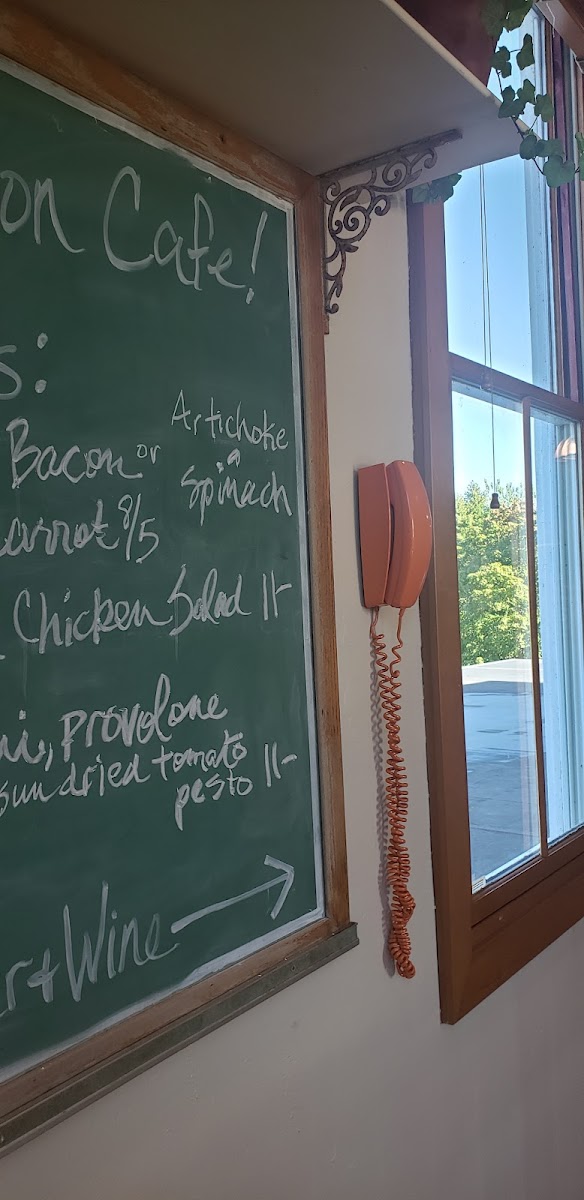 on Cafe!
s:
Bacon or Artichoke
Spinach
arrot 8/5
Chicken Salad 11-
i, provolone
sundried tomato
pesto 11-
r + Wine →